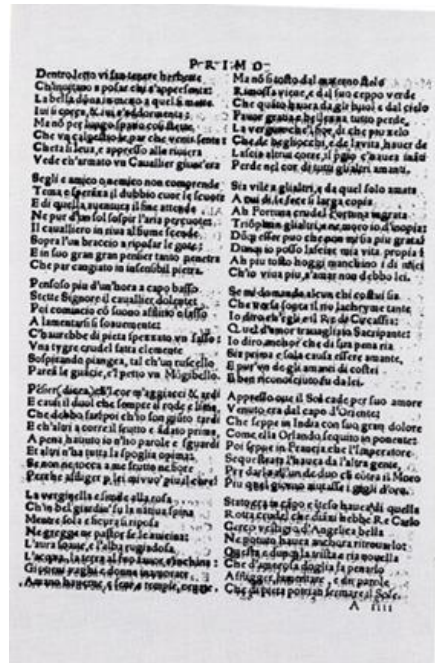 P R I M O
Dentro letto vi fan tenere herbette
Ch'inuitano a posar chi s'appresenta:
La bella dõna in mezo a quel si mette
Iui si corca, & iui s'addormenta:
Ma nõ per lungo spatio così stette
Che vn calpestio le par che venir senta
Cheta si leua, e appresso alla riuiera
Vede ch'armato vn Cauallier giunt'era
Segli e amico o nemico non comprende
Tema e speranza il dubbio cuor le scuote
E di quella auentura il fine attende
Ne pur d'un sol sospir l'aria percuote:
Il caualliero in riua al fiume scende
Sopra l'un braccio a riposar le gote:
E in suo gran gran pensier tanto penetra
Che par cangiato in insensibil pietra.
Pensoso piu d'un'hora a capo basso
Stette Signore il cauallier dolente:
Poi comincio cõ suono afflitto e lasso
A lamentarsi si soauemente:
C'haurebbe di pieta spezzato vn sasso:
Vna tygre crudel fatta clemente
Sospirando piangea, tal ch'un ruscello
Parea le guācie, e'l petto vn Mõgibello.
Pēsier (dicea) che'l cor m'aggiacci & ardi
E causi il duol che sempre il rode e lima,
Che debbo far? poi ch'io son giūto tardi
E ch'altri a corre il frutto e ādato prima,
A pena hauuto io n'ho parole e sguardi
Et altri n'ha tutta la spoglia opima:
Se non ne tocca a me frutto ne fiore
Perche affligger p lei mi vuo' piu il core?
La verginella e simile alla rosa
Ch'in bel giardin' su la natiua spina
Mentre sola e sicura si riposa
Ne gregge ne pastor se le auicina:
L'aura soaue, e l'alba rugiadosa,
L'acqua, la terra al suo fauor s'inchina:
Giouani vaghi e donne innamorate
Amano hauerne, e seni e tempie, ornate.
Ma nõ si tosto dal materno stelo
Rimossa viene, e dal suo ceppo verde
Che quāto hauea da gli huoī e dal cielo
Fauor gratia e bellezza tutto perde.
La vergine che'l fior, di che piu zelo
Che de begliocchi, e de la vita, hauer de
Lascia altrui corre, il pgio c'hauea ināti
Perde nel cor di tutti gli altri amanti.
Sia vile a gli altri, e da quel solo amata
A cui di se fece si larga copia
Ah Fortuna crudel Fortuna ingrata
Triõphan gli altri, e ne moro io d'inopia:
Dūq; esser puo che non mi sia piu grata?
Dunq io posso lasciar mia vita propria?
Ah piu tosto hoggi manchino i dì miei
Ch'io viua piu, s'amar non debbo lei.
Se mi domanda alcun chi costui sia
Che versa sopra il rio lachryme tante
Io diro ch'egli e il Re di Circassia:
Quel d'amor trauagliato Sacripante:
Io diro anchor che di sua pena ria
Sia prima e sola causa essere amante,
E pur vn de gli amanti di costei
E ben riconosciuto fu da lei.
Appresso oue il Sol cade per suo amore
Venuto era dal capo d'Oriente:
Che seppe in India con suo gran dolore
Come ella Orlando sequito in ponente:
Poi seppe in Francia che l'Imperatore
Sequestrata l'hauea da l'altra gente,
Per darla all'un de duo che cõtra il Moro
Piu quel giorno aiutasse i gigli d'oro.
Stato era in cāpo e inteso hauea di quella
Rotta crudel che diāzi hebbe Re Carlo
Cerco vestigio d'Angelica bella
Ne potuto hauea anchora ritrouarlo:
Questa e dunq la trista e ria nouella
Che d'amorosa doglia fa penarlo
Affligger, lamentare, e dir parole
Che di pieta potrian fermare il Sole.
A iiii